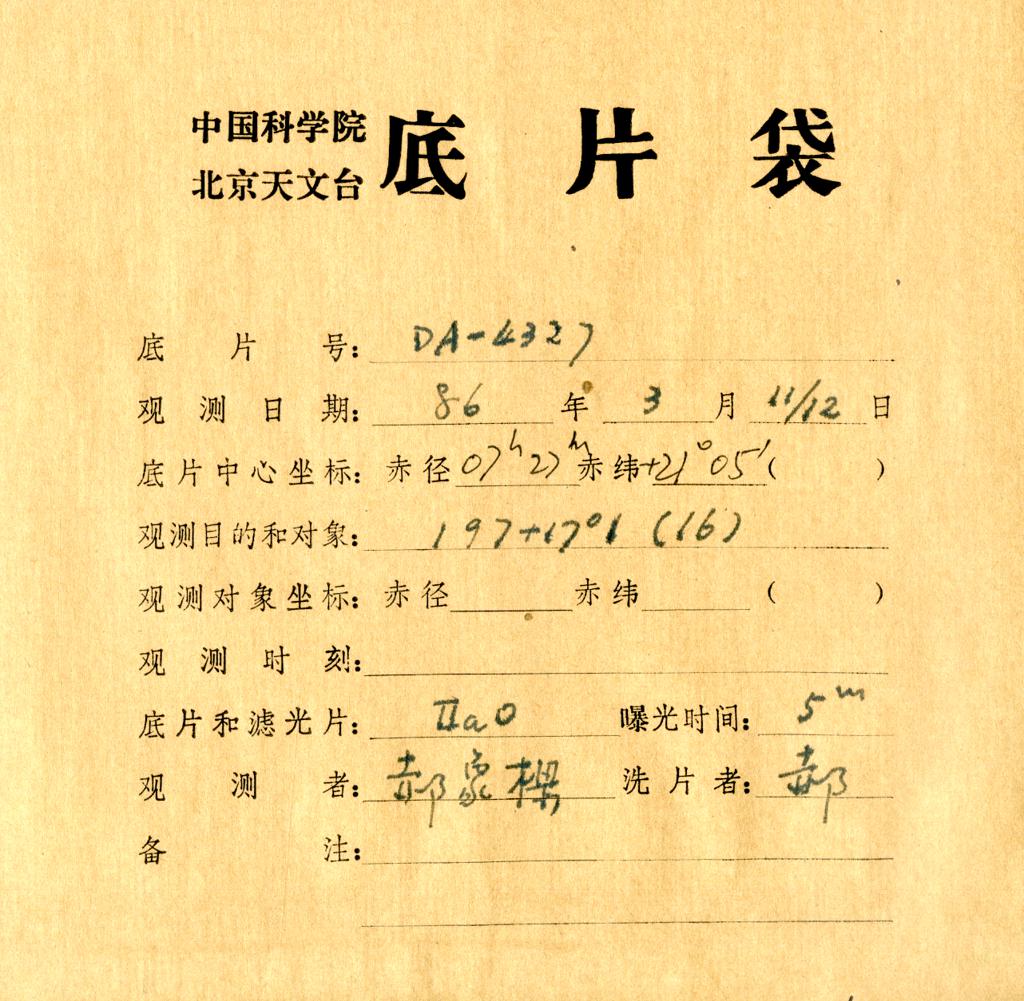 中国科学院
北京天文台 底片袋
底片号: DA-4327
观测日期: 86 年 3 月 11/12 日
底片中心坐标: 赤径 07h27m 赤纬 +21°05′ ( )
观测目的和对象: 197+17°1 (16)
观测对象坐标: 赤径 赤纬 ( )
观测时刻:
底片和滤光片: IIaO 曝光时间: 5m
观测者: 郝象樑 洗片者: 郝
备注: